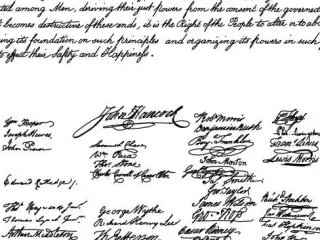 ted among Men, deriving their just power from the consent of the governed
becomes destructive of these ends, it is the Right of the People to alter or to ab
ing its foundation on such principles and organizing its powers in such
to effect their Safety and Happiness.
John Hancock
Wm Hooper
Joseph Hewes,
John Penn
Edward Rutledge /.
Arthur Middleton
Samuel Chase
Wm Paca
Thos Stone
George Wythe
Richard Henry Lee
Th Jefferson
Robt Morris
Benjamin Rush
Benj Franklin
John Morton
Geo Clymer
Jas Smith
Geo Taylor
James Wilson
Geo Ross
Caesar Rodney
Wm Floyd
Phil Livingston
Frans Lewis
Lewis Morris
Richd Stockton